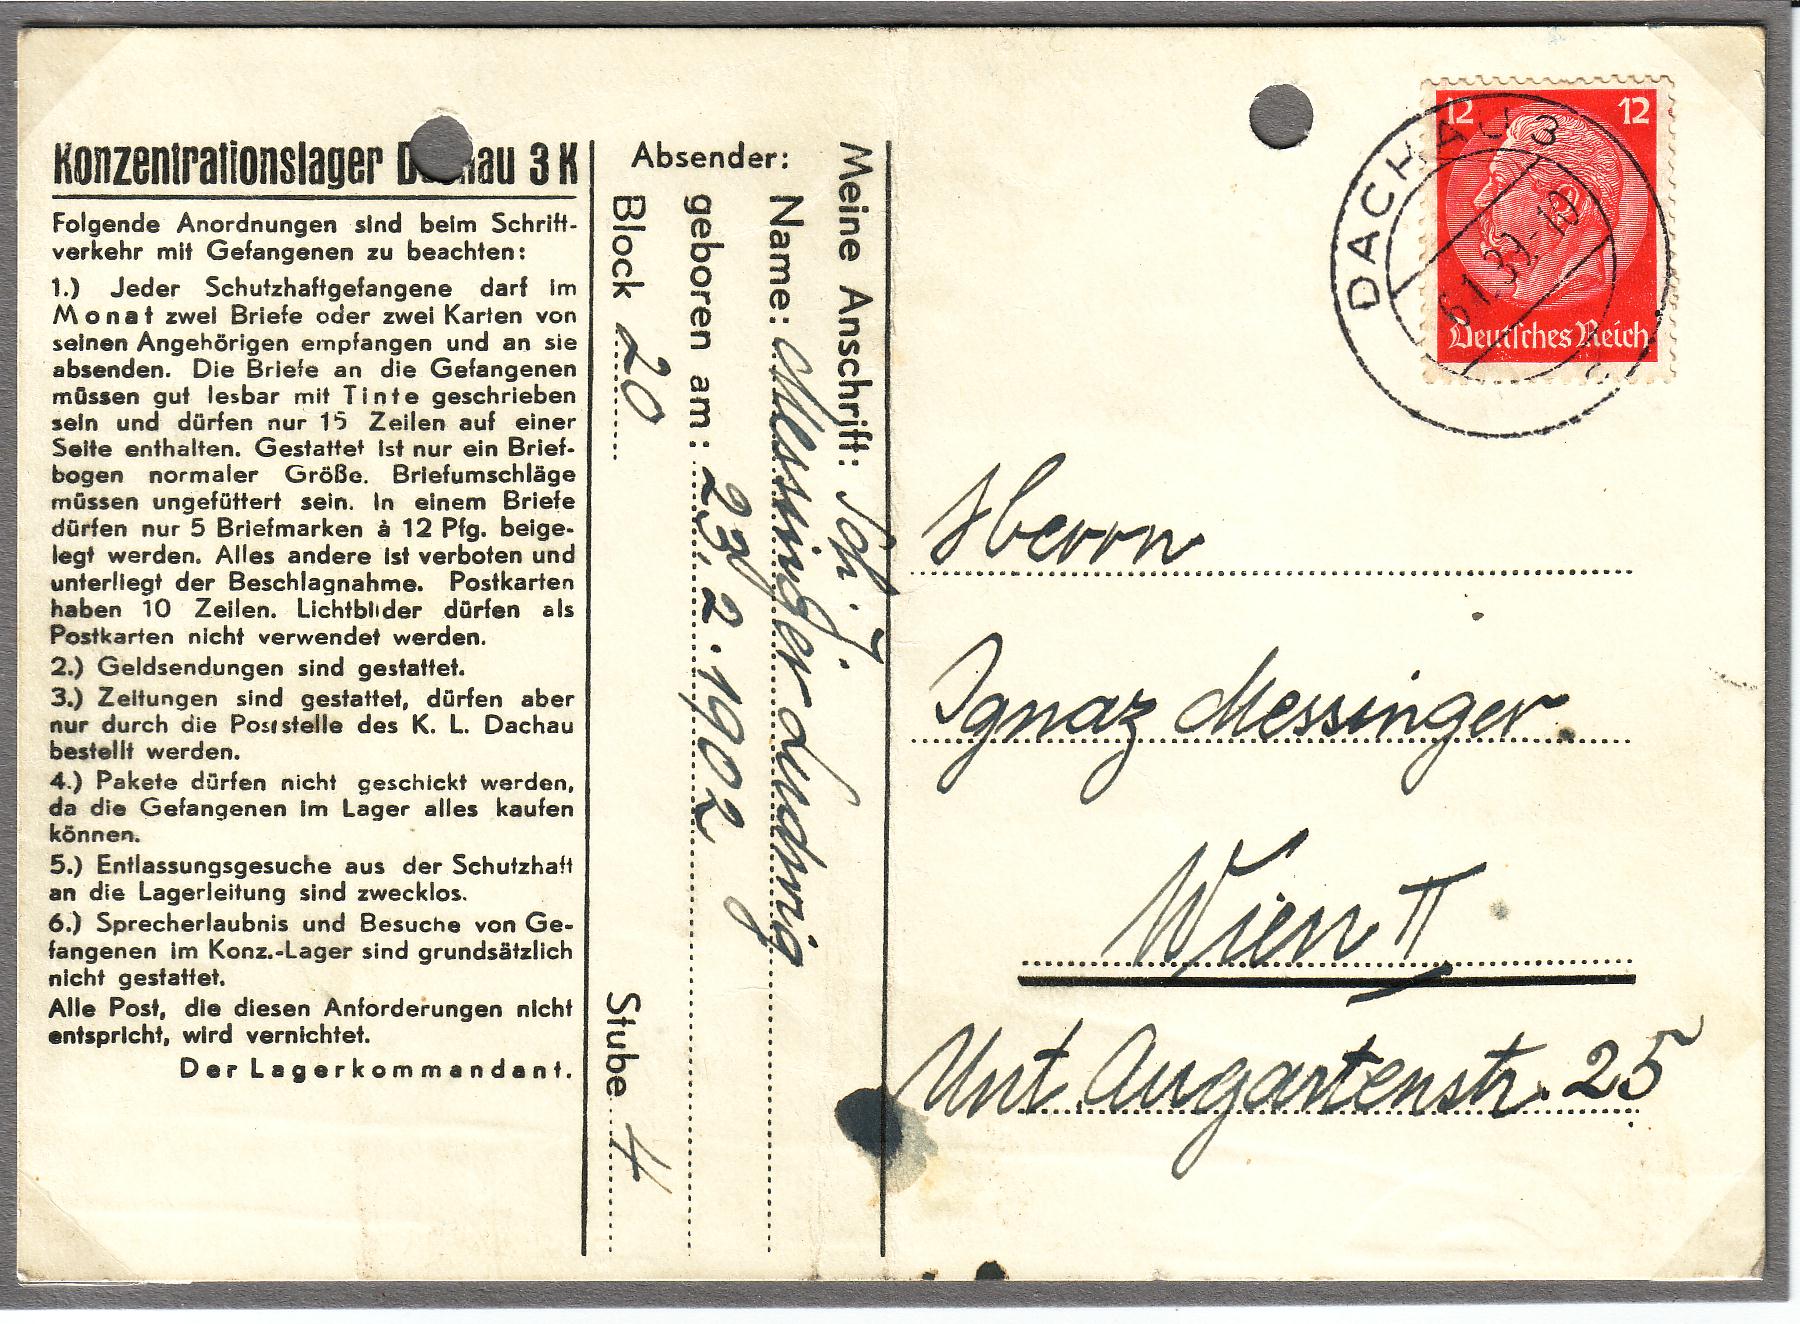 Konzentrationslager Dachau 3 K
Folgende Anordnungen sind beim Schrift-
verkehr mit Gefangenen zu beachten:
1.) Jeder Schutzhaftgefangene darf im
Monat zwei Briefe oder zwei Karten von
seinen Angehörigen empfangen und an sie
absenden. Die Briefe an die Gefangenen
müssen gut lesbar mit Tinte geschrieben
sein und dürfen nur 15 Zeilen auf einer
Seite enthalten. Gestattet ist nur ein Brief-
bogen normaler Größe. Briefumschläge
müssen ungefüttert sein. In einem Briefe
dürfen nur 5 Briefmarken à 12 Pfg. beige-
legt werden. Alles andere ist verboten und
unterliegt der Beschlagnahme. Postkarten
haben 10 Zeilen. Lichtbilder dürfen als
Postkarten nicht verwendet werden.
2.) Geldsendungen sind gestattet.
3.) Zeitungen sind gestattet, dürfen aber
nur durch die Poststelle des K. L. Dachau
bestellt werden.
4.) Pakete dürfen nicht geschickt werden,
da die Gefangenen im Lager alles kaufen
können.
5.) Entlassungsgesuche aus der Schutzhaft
an die Lagerleitung sind zwecklos.
6.) Sprecherlaubnis und Besuche von Ge-
fangenen im Konz.-Lager sind grundsätzlich
nicht gestattet.
Alle Post, die diesen Anforderungen nicht
entspricht, wird vernichtet.
Der Lagerkommandant.
Absender:
Meine Anschrift: Sch. J.
Name: Messinger Ludwig
geboren am: 23. 2. 1902
Block 20 Stube 4
12 12
Deutsches Reich
DACHAU 3
6.1.39.-12
Herrn
Ignaz Messinger
Wien II
Unt. Augartenstr. 25